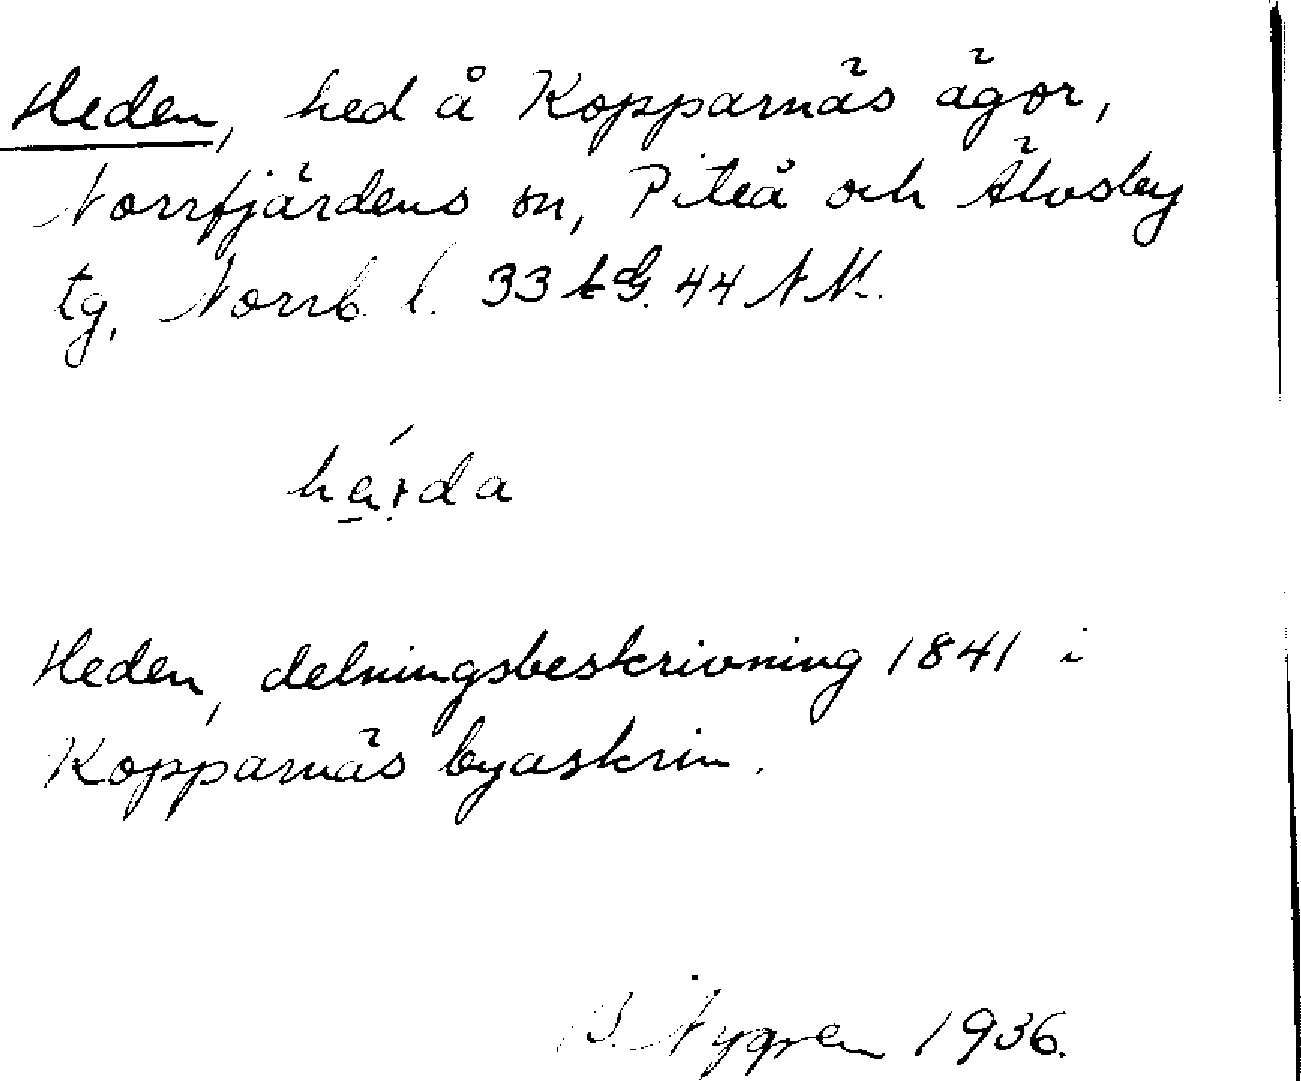 Heden, hed å Kopparnäs ägor,
Norrfjärdens sn, Piteå och Älvsby
tg, Norrb. l. 33 44 N
Heden, delningsbeskrivning 1841 i
Kopparnäs byaskrin.
B. Nygren 1936.